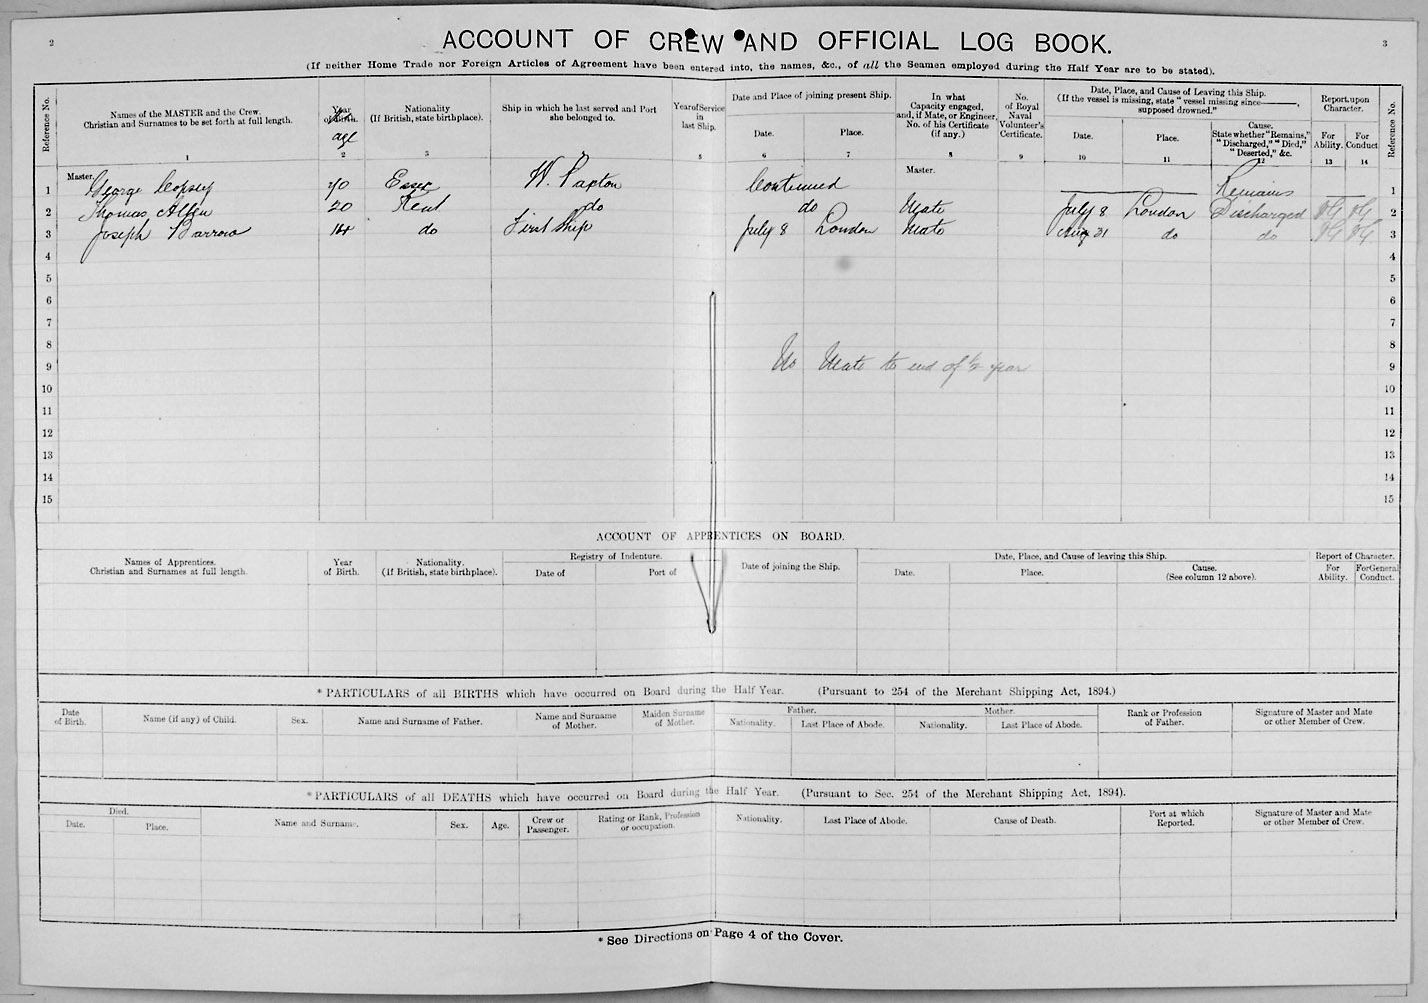 2
3
ACCOUNT OF CREW AND OFFICIAL LOG BOOK.
(If neither Home Trade nor Foreign Articles of Agreement have been entered into, the names, &c., of all the Seamen employed during the Half Year are to be stated).
Reference No.
Names of the MASTER and the Crew. Christian and Surnames to be set forth at full length.
Year of Birth. age
Nationality (If British, state birthplace).
Ship in which he last served and Port she belonged to.
Year of Service in last Ship.
Date and Place of joining present Ship.
Date.
Place.
In what Capacity engaged, and, if Mate, or Engineer, No. of his Certificate (if any.)
No. of Royal Naval Volunteer's Certificate.
Date, Place, and Cause of Leaving this Ship. (If the vessel is missing, state "vessel missing since———, supposed drowned."
Date.
Place.
Cause. State whether "Remains," "Discharged," "Died," "Deserted," &c.
Report upon Character.
For Ability.
For Conduct
Reference No.
1 2 3 5 6 7 8 9 10 11 12 13 14
1 Master. George Copsey 40 Essex W. Paxton Continued Master. Remains 1
2 Thomas Allen 20 Kent do do Mate July 8 London Discharged VG VG 2
3 Joseph Barrow do First Ship July 8 London Mate Aug 31 do do VG VG 3
4 4
5 5
6 6
7 7
8 8
9 No Mate to end of ½ year 9
10 10
11 11
12 12
13 13
14 14
15 15
ACCOUNT OF APPRENTICES ON BOARD.
Names of Apprentices. Christian and Surnames at full length.
Year of Birth.
Nationality. (If British, state birthplace).
Registry of Indenture.
Date of
Port of
Date of joining the Ship.
Date, Place, and Cause of leaving this Ship.
Date.
Place.
Cause. (See column 12 above).
Report of Character.
For Ability.
For General Conduct.
*PARTICULARS of all BIRTHS which have occurred on Board during the Half Year. (Pursuant to 254 of the Merchant Shipping Act, 1894.)
Date of Birth.
Name (if any) of Child.
Sex.
Name and Surname of Father.
Name and Surname of Mother.
Maiden Surname of Mother.
Father.
Nationality.
Last Place of Abode.
Mother.
Nationality.
Last Place of Abode.
Rank or Profession of Father.
Signature of Master and Mate or other Member of Crew.
*PARTICULARS of all DEATHS which have occurred on Board during the Half Year. (Pursuant to Sec. 254 of the Merchant Shipping Act, 1894).
Died.
Date.
Place.
Name and Surname.
Sex.
Age.
Crew or Passenger.
Rating or Rank, Profession or occupation.
Nationality.
Last Place of Abode.
Cause of Death.
Port at which Reported.
Signature of Master and Mate or other Member of Crew.
* See Directions on Page 4 of the Cover.